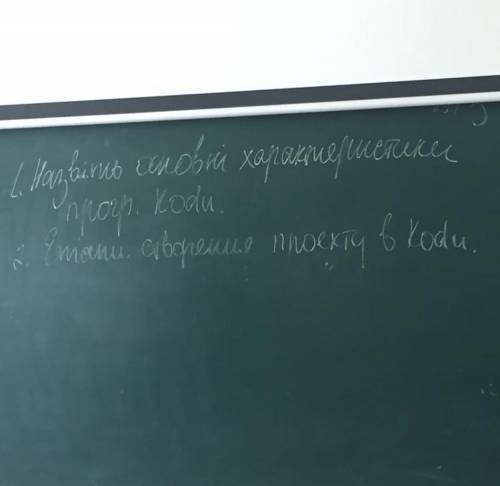 1. Назвіть основні характеристики
прогр. Kodu.
2. Етапи створення проекту в Kodu.